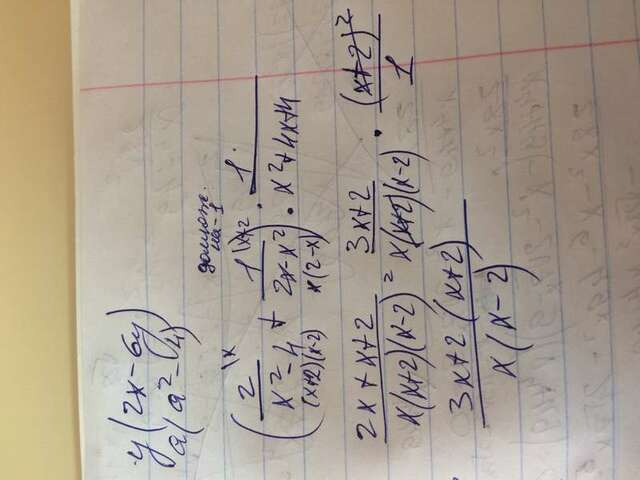 y(2x-6y)
a(a²-4)
домнож.
на -1
(2\x/x²-4 + 1\x+2/2x-x²) : 1/x²+4x+4
(x+2)(x-2) x(2-x)
2x+x+2/x(x+2)(x-2) = 3x+2/x(x+2)(x-2) · (x+2)²/1
3x+2(x+2)/x(x-2)